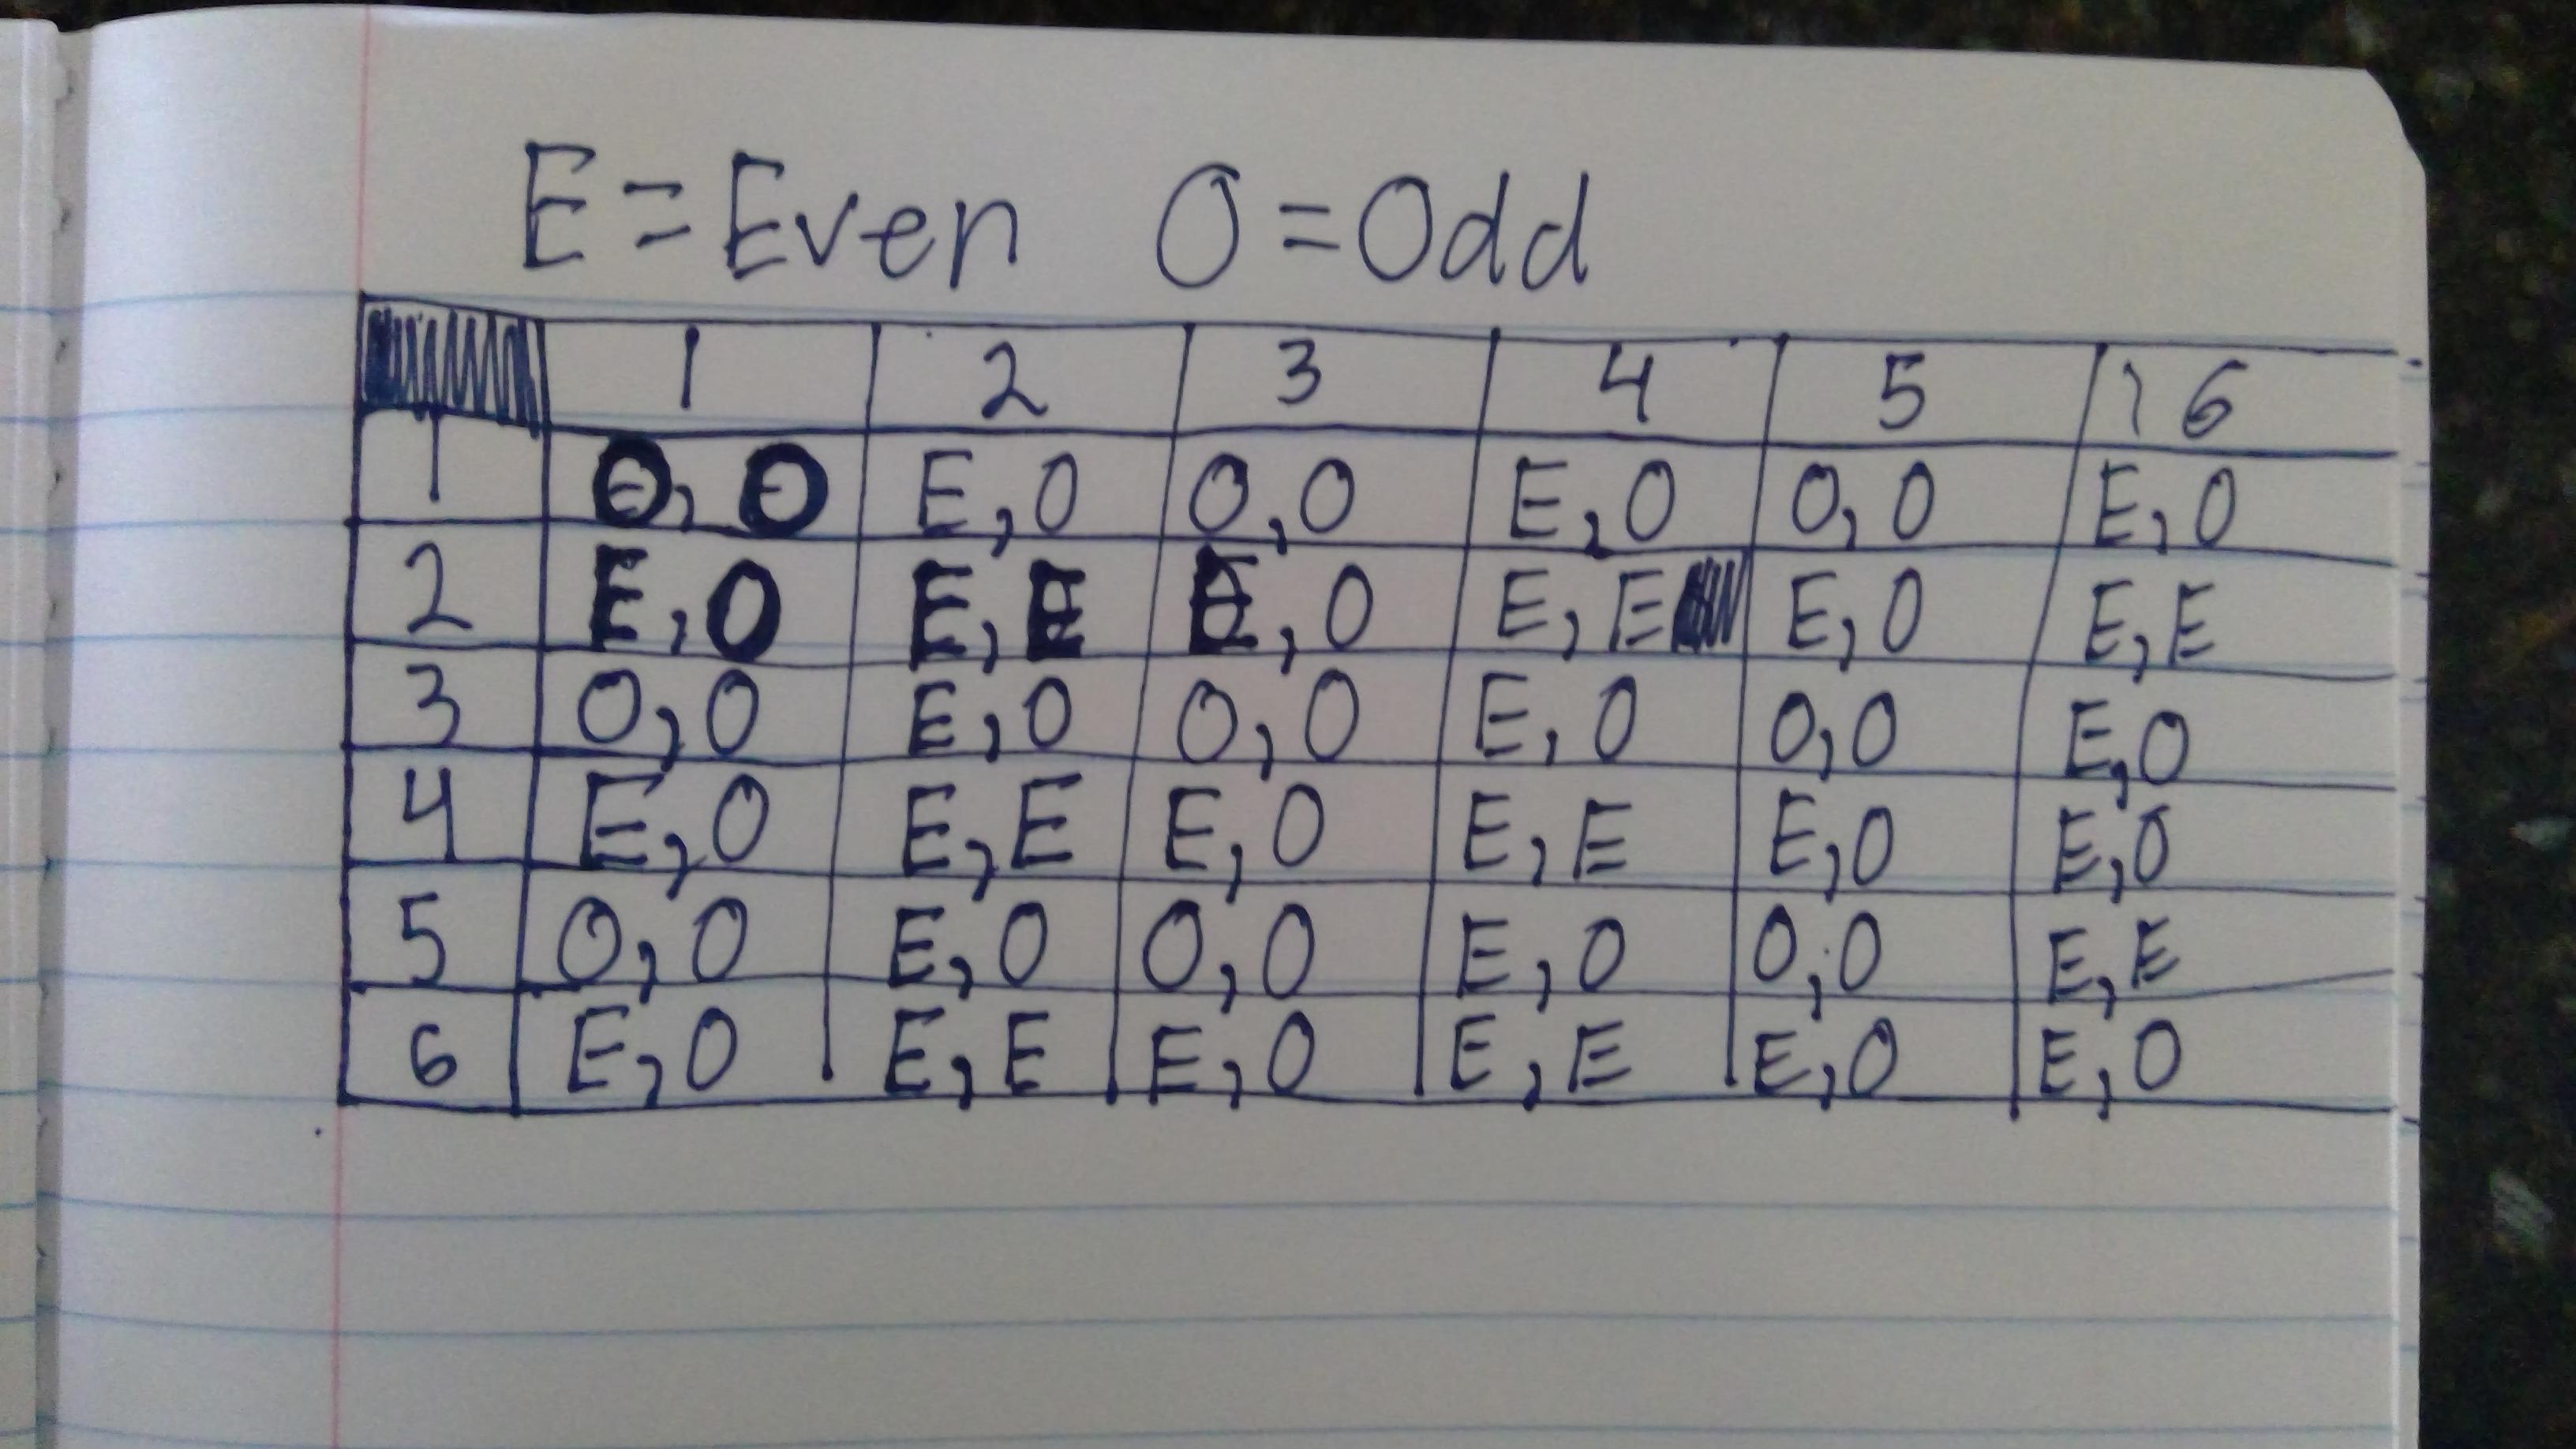 E = Even O = Odd
1 2 3 4 5 6
1 O, O E, O O, O E, O O, O E, O
2 E, O E, E E, O E, E E, O E, E
3 O, O E, O O, O E, O O, O E, O
4 E, O E, E E, O E, E E, O E, O
5 O, O E, O O, O E, O O, O E, E
6 E, O E, E E, O E, E E, O E, O